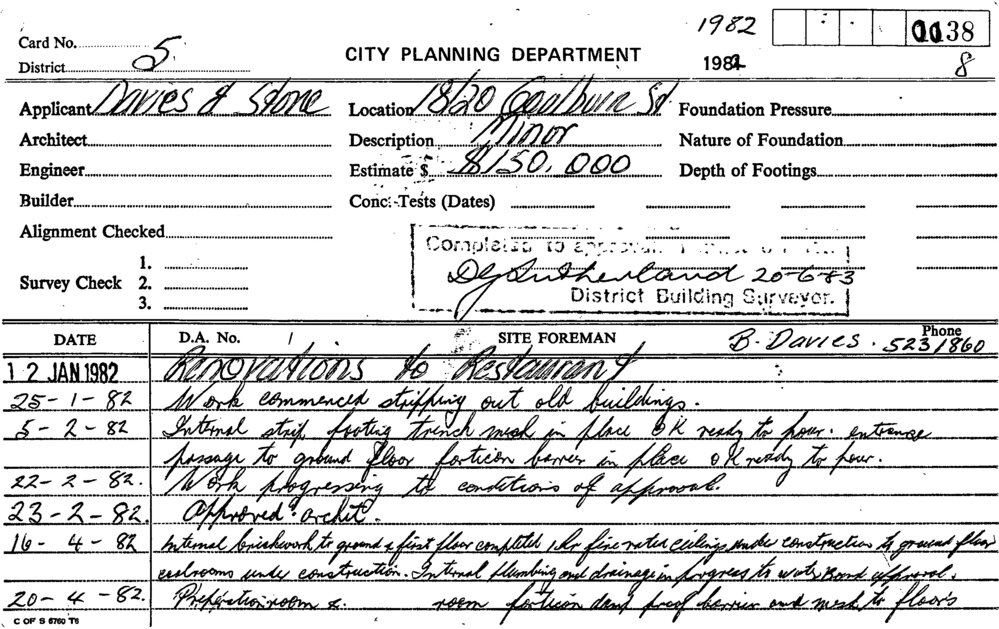 1982 0038
Card No. 5
CITY PLANNING DEPARTMENT
District 1982 8
Applicant Davies & Stone Location 18/20 Goulburn St Foundation Pressure
Architect Description Minor Nature of Foundation
Engineer Estimate $ $150,000 Depth of Footings
Builder Conc. Tests (Dates)
Alignment Checked
Completed to
1.
Survey Check 2. DJ Sutherland 20-6-83
District Building Surveyor.
3.
DATE D.A. No. / SITE FOREMAN B. Davies. Phone 5231860
12 JAN 1982 Renovations to Restaurant
25-1-82 Work commenced stripping out old buildings.
5-2-82 Internal strip footing trench mesh in place OK ready to pour. entrance
passage to ground floor forticon barrier in place OK ready to pour.
22-2-82. Work progressing to conditions of approval.
23-2-82. Approved archit.
16-4-82 Internal brickwork to ground & first floor completed 1 hr fire rated ceilings under construction to ground floor
coolrooms under construction. Internal plumbing and drainage in progress to water Board approval.
20-4-82. Preparation room & room forticon damp proof barrier and mesh to floors
C OF S 6760 T6